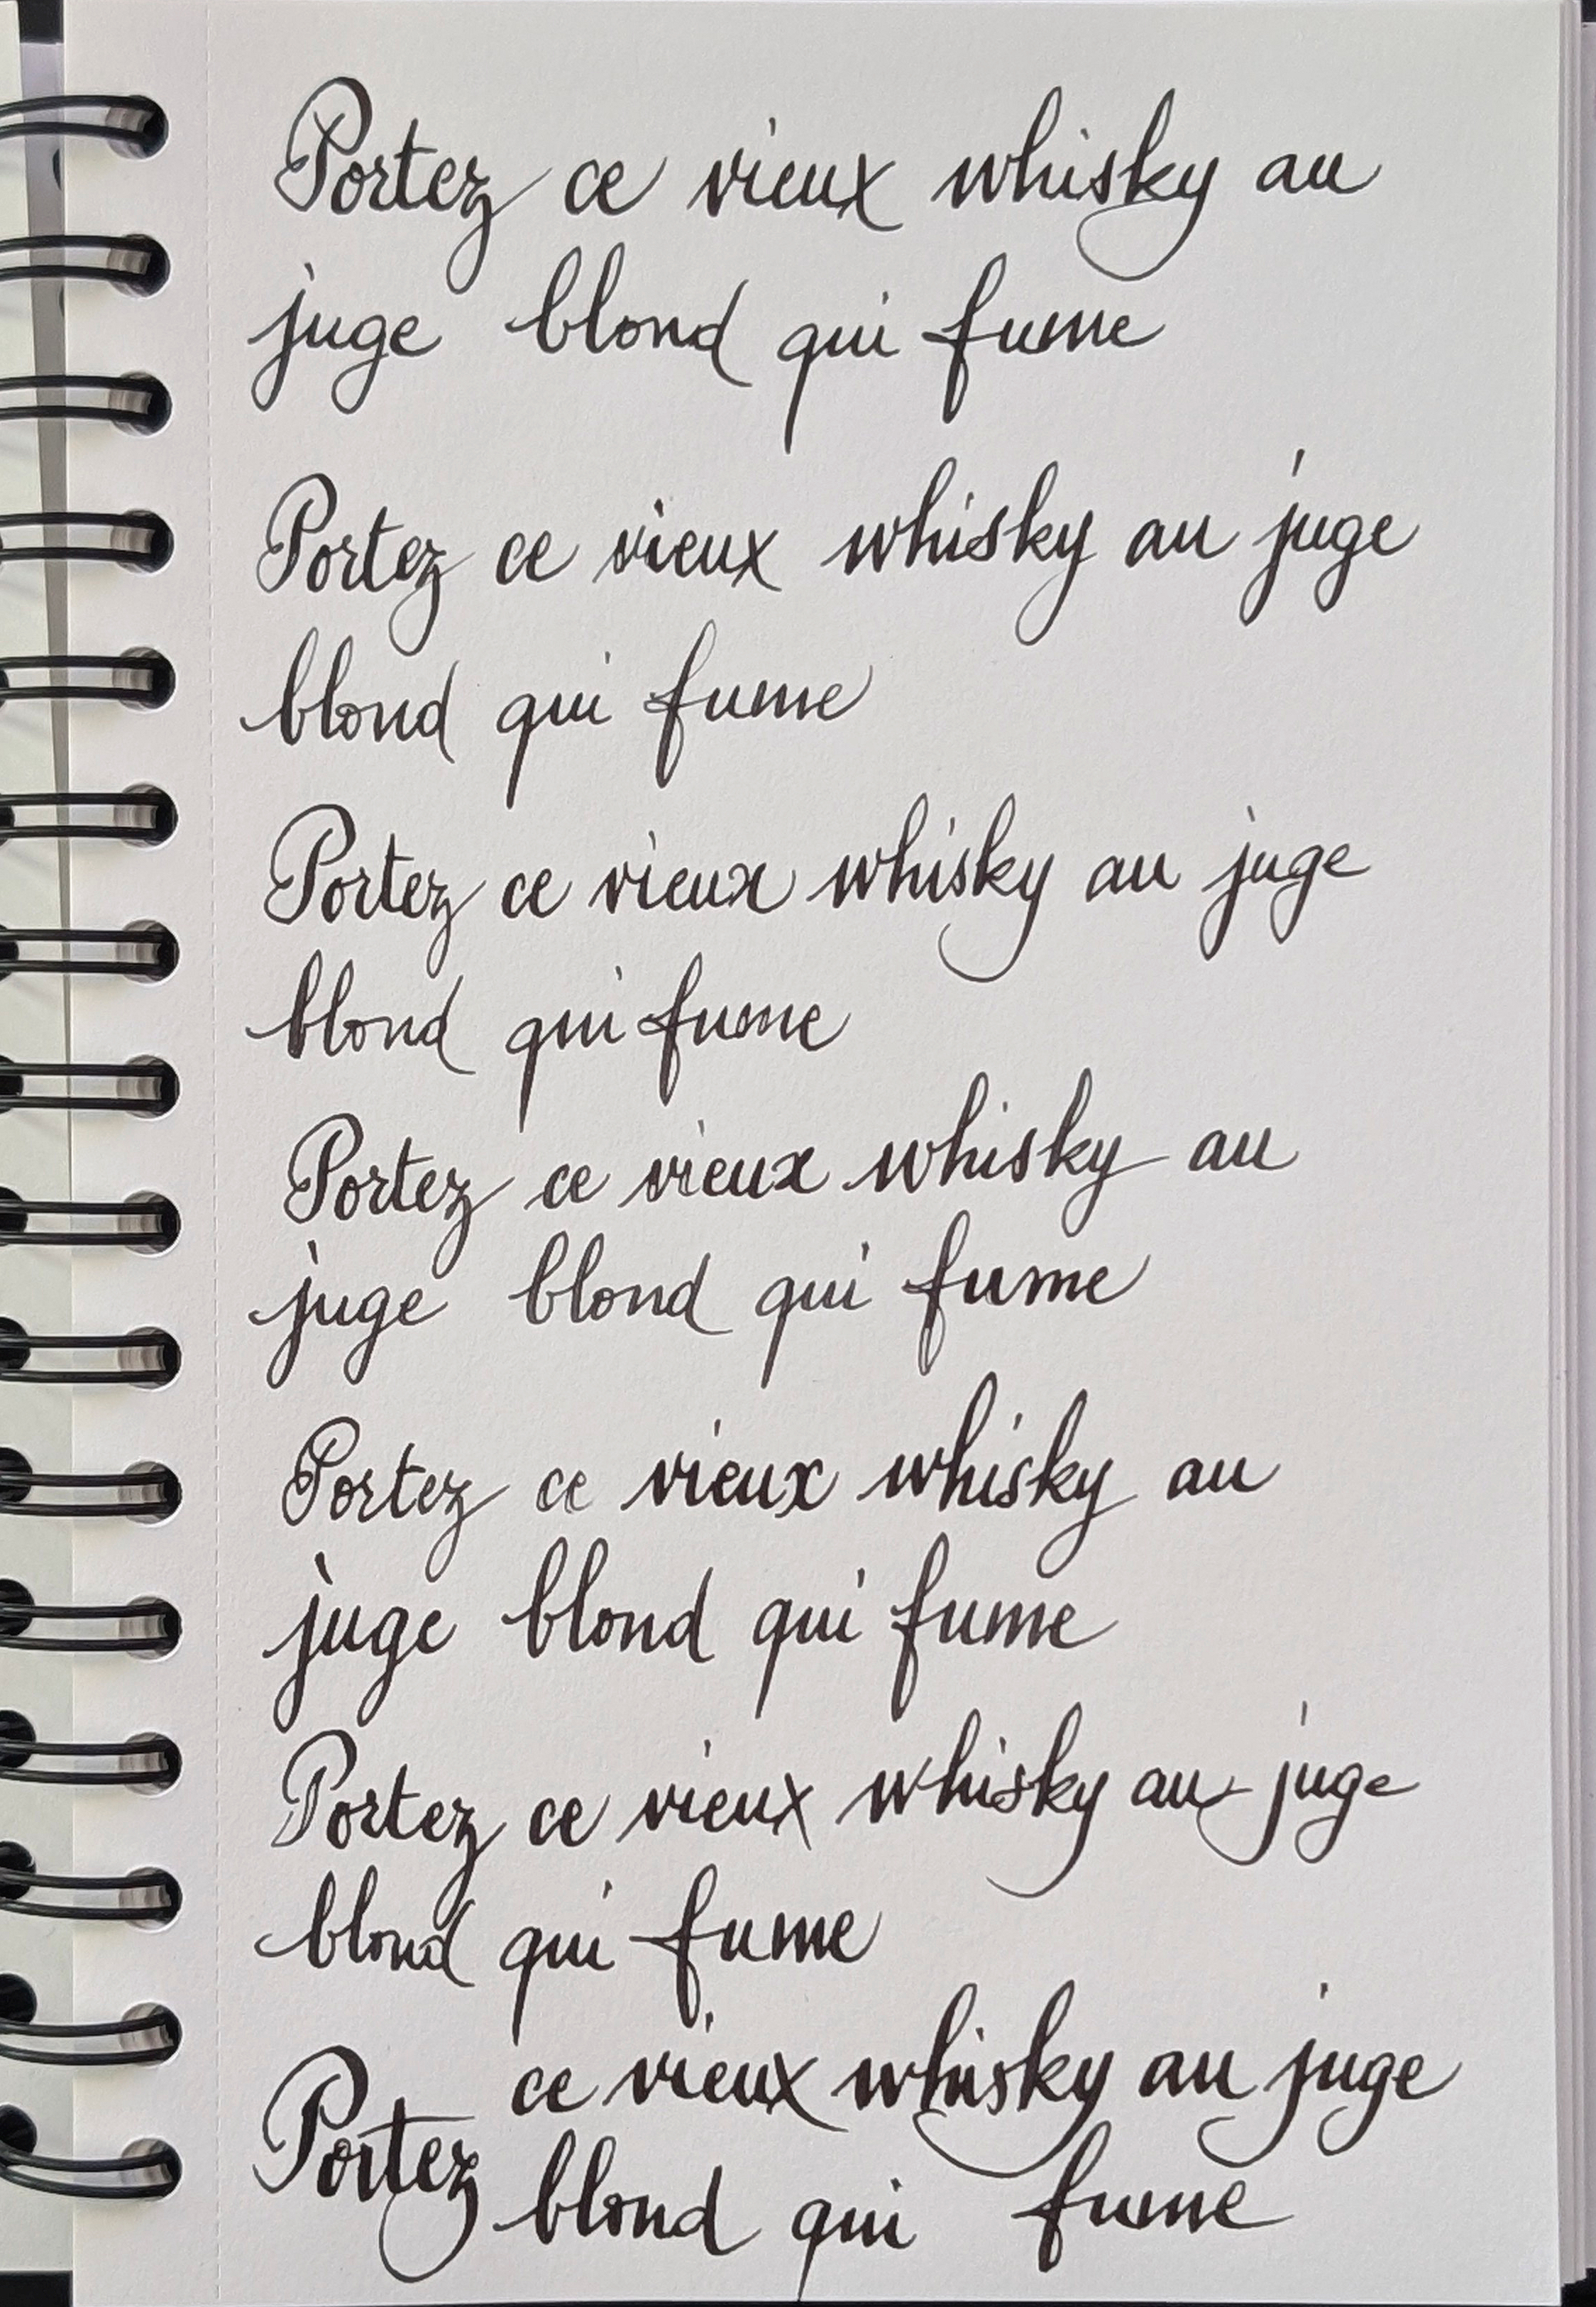 Portez ce vieux whisky au
juge blond qui fume
Portez ce vieux whisky au juge
blond qui fume
Portez ce vieux whisky au juge
blond qui fume
Portez ce vieux whisky au
juge blond qui fume
Portez ce vieux whisky au
juge blond qui fume
Portez ce vieux whisky au juge
blond qui fume
Portez ce vieux whisky au juge
blond qui fume